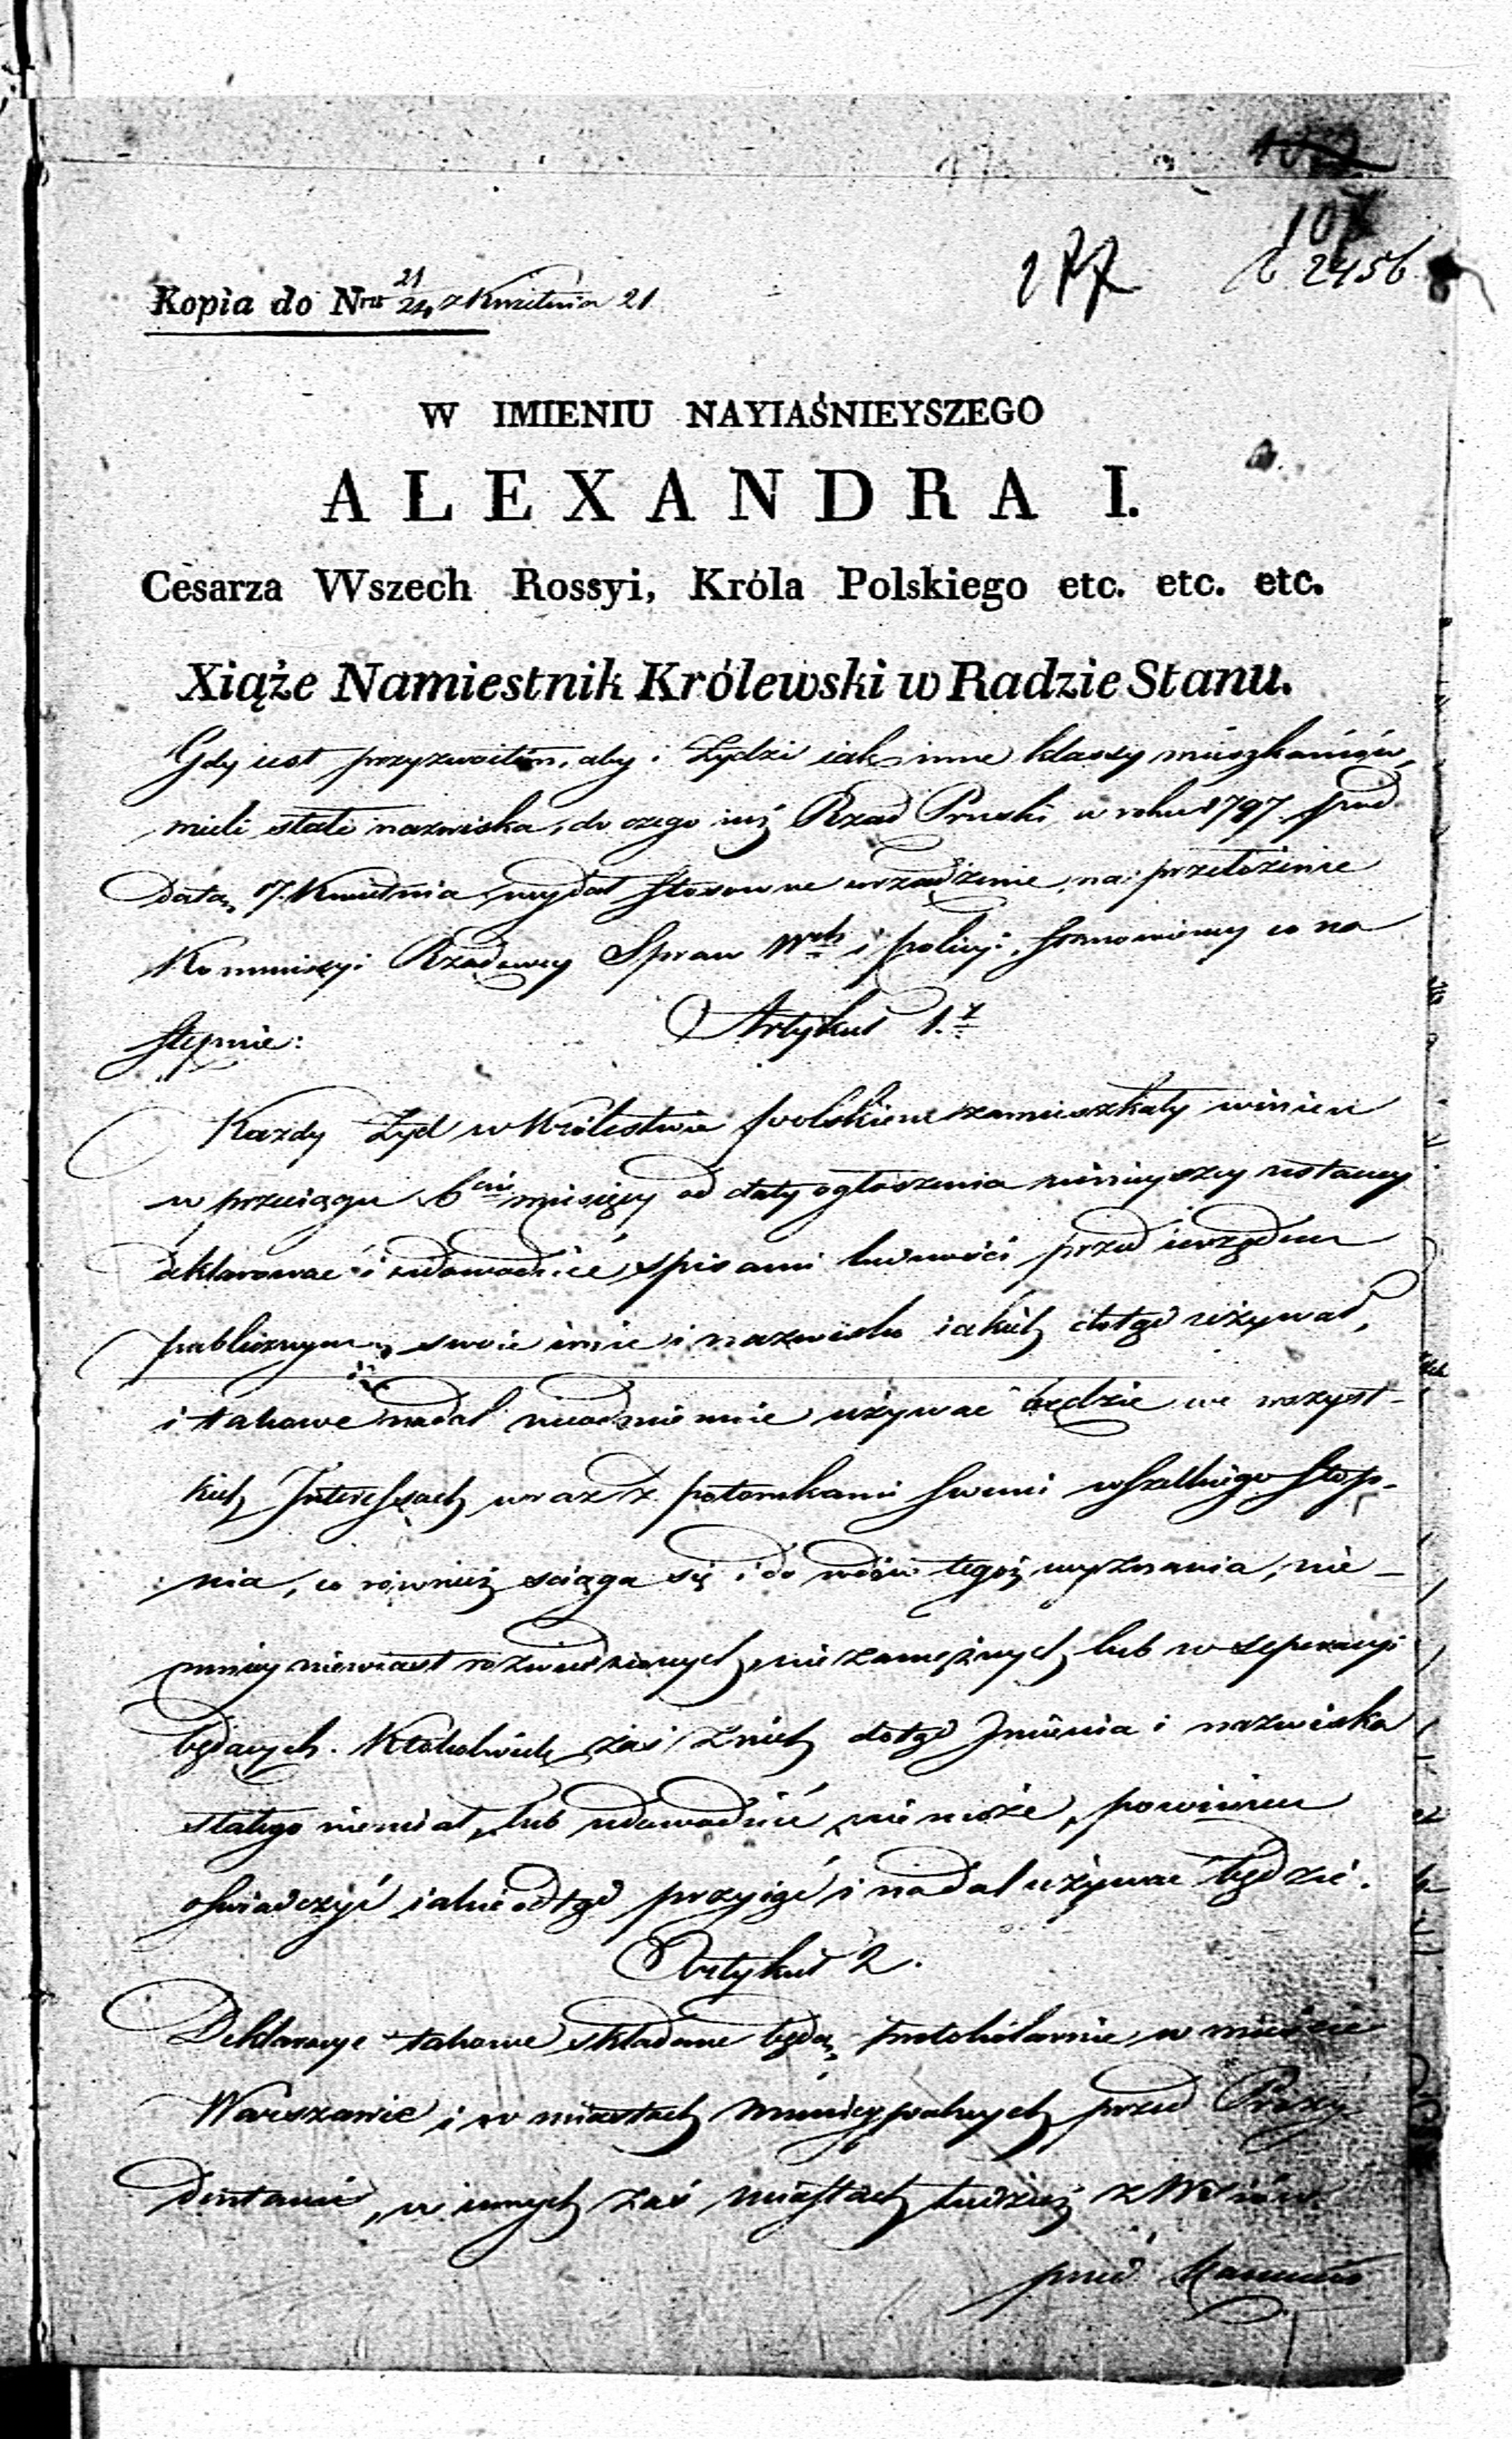 107
177
2456
Kopia do Nru 21/24 z Kwietnia 21
W IMIENIU NAYIAŚNIEYSZEGO
ALEXANDRA I.
Cesarza Wszech Rossyi, Króla Polskiego etc. etc. etc.
Xiąże Namiestnik Królewski w Radzie Stanu.
Gdy iest przyzwoitem, aby i Żydzi iak inne klassy mieszkańców,
mieli stałe nazwiska, do czego iuż Rząd Pruski w roku 1797 pod
datą 17. Kwietnia wydał stosowne urządzenie, na przełożenie
Kommissyi Rządowey Spraw Wch i policyi, stanowiemy co na
stępuie:
Artykuł 1.y
Każdy Żyd w Królestwie polskiem zamieszkały winien
w przeciągu 6ciu miesięcy od daty ogłoszenia ninieyszey ustawy
deklarować i udowodnić spisami ludności przed urzędem
publicznym, swoie imie i nazwisko iakich dotąd używał,
i takowe nadal nieodmiennie używać będzie we wszyst-
kich Interessach wraz z potomkami swemi wszelkiego stop-
nia, co również ściąga się i do wdów tegoż wyznania, nie-
mniey niewiast rozwiedzionych, niezamężnych lub w separacyi
będących. Ktokolwiek zaś z nich dotąd Jmienia i nazwiska
stałego niemiał, lub udowodnić nie może, powinien
oświadczyć iakie odtąd przyiąć i nadal używać będzie.
Artykuł 2.
Deklaracye takowe składane będą protokólarnie w mieście
Warszawie i w miastach municypalnych przed Prezy-
dentami, w innych zaś miastach tudzież z Wsiów
przed